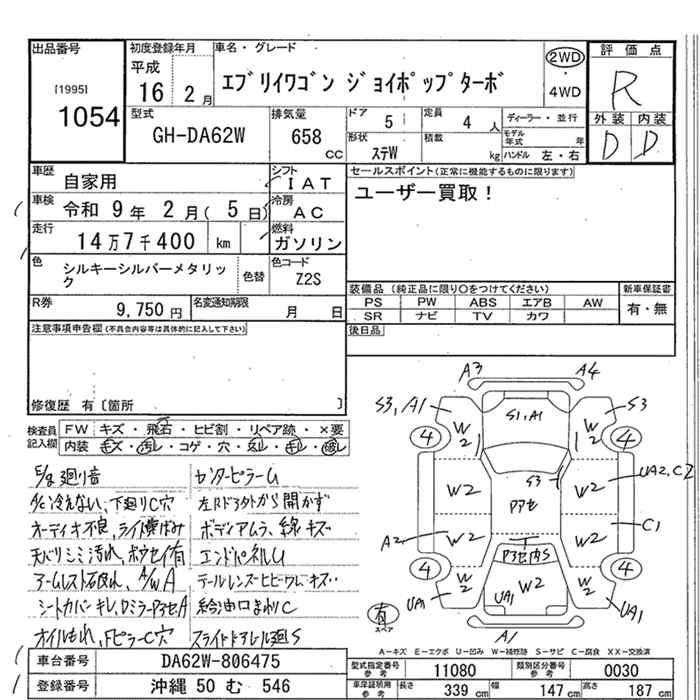 出品番号
[1995]
1054
初度登録年月
平成
16 2月
車名・グレード
エブリイワゴン ジョイポップターボ
2WD
・
4WD
評価点
R
外装 内装
D D
型式
GH-DA62W
排気量
658
cc
ドア
5
定員
4 人
形状
ステW
積載
kg
ディーラー・並行
モデル年式 年
ハンドル 左・右
車歴
自家用
シフト
IAT
車検
令和 9年 2月( 5日)
冷房
AC
走行
14万7千400 km
燃料
ガソリン
色
シルキーシルバーメタリック
色替
色コード
Z2S
R券
9,750 円
名変通知期限
月 日
セールスポイント(正常に機能するものに限ります)
ユーザー買取!
装備品 (純正品に限り○をつけてください)
PS PW ABS エアB AW
SR ナビ TV カワ
新車保証書
有・無
後日品
注意事項申告欄(不具合内容等は具体的に記入して下さい)
修復歴 有〔箇所 〕
検査員記入欄
FW キズ・飛石・ヒビ割・リペア跡・×要
内装 キズ・汚レ・コゲ・穴・スレ・キレ・破レ
A/C冷えない、下廻りC穴
オーディオ不良、ライト黄ばみ
天バリシミ汚れ、ホウセイ有
アームレスト破れ、A/W A
シートカバーキレ、DミラーアセA
オイルもれ、FピラーC穴
センターピラーU
左Rドア外から開かず
ボディアムラ、線キズ
エンドパネルU
テールレンズヒビワレキズ・・
給油口まわりC
スライドドアレール廻S
A3
A4
S3,A1
S1,A1
S3
W2
W2
4
4
S3
W2
アセ
W2
UA2,C2
C1
A2
W2
W2
アセ凹S
4
4
W2
W2
W2
UA1
UA1
UA1
有
スペア
A1
A-キズ E-エクボ U-凹み W-補修跡 S-サビ C-腐食 XX-交換済
車台番号
DA62W-806475
登録番号
沖縄 50 む 546
型式指定番号
参考
11080
類別区分番号
参考
0030
車庫証明用
参考
長さ
339 cm
幅
147 cm
高さ
187 cm